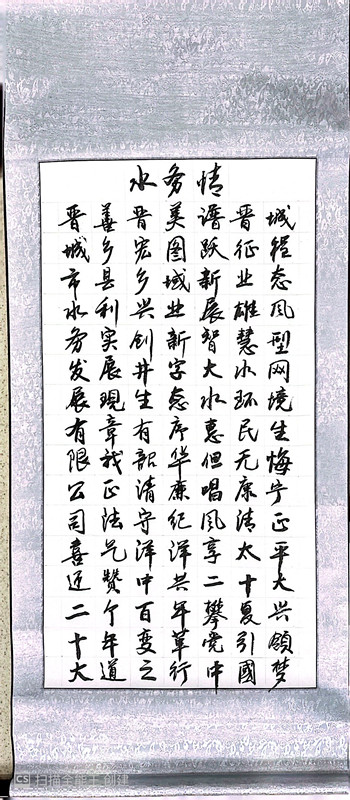 水务情
晋善晋美谱晋城
城乡宏图跃征程
市县乡域新业态
水利兴业展雄风
务实创新智慧型
发展井字大水网
展现生态水环境
有章有序惠民生
限我韶华但无悔
公正清廉唱康宁
司法守纪风清正
喜气洋洋享太平
迎赞中共二十大
二个百年攀夏兴
十年变革党引领
大道之行中国梦
CS 扫描全能王 创建